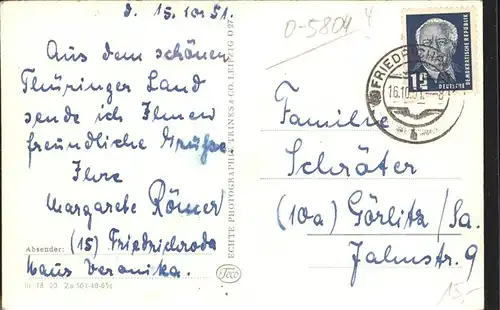 d. 15.10.51.
Aus dem schönen
Thüringer Land
sende ich Ihnen
freundliche Grüße
Ihre
Margarete Römer
Absender: (15) Friedrichroda
Haus Veronika.
ECHTE PHOTOGRAPHIE TRINKS & CO. LEIPZIG O 27
Trico
O-5804
DEUTSCHE
DEMOKRATISCHE REPUBLIK
12
16.10.51
Familie
Schräter
(10a) Görlitz/Sa.
Jahnstr. 9
15,-